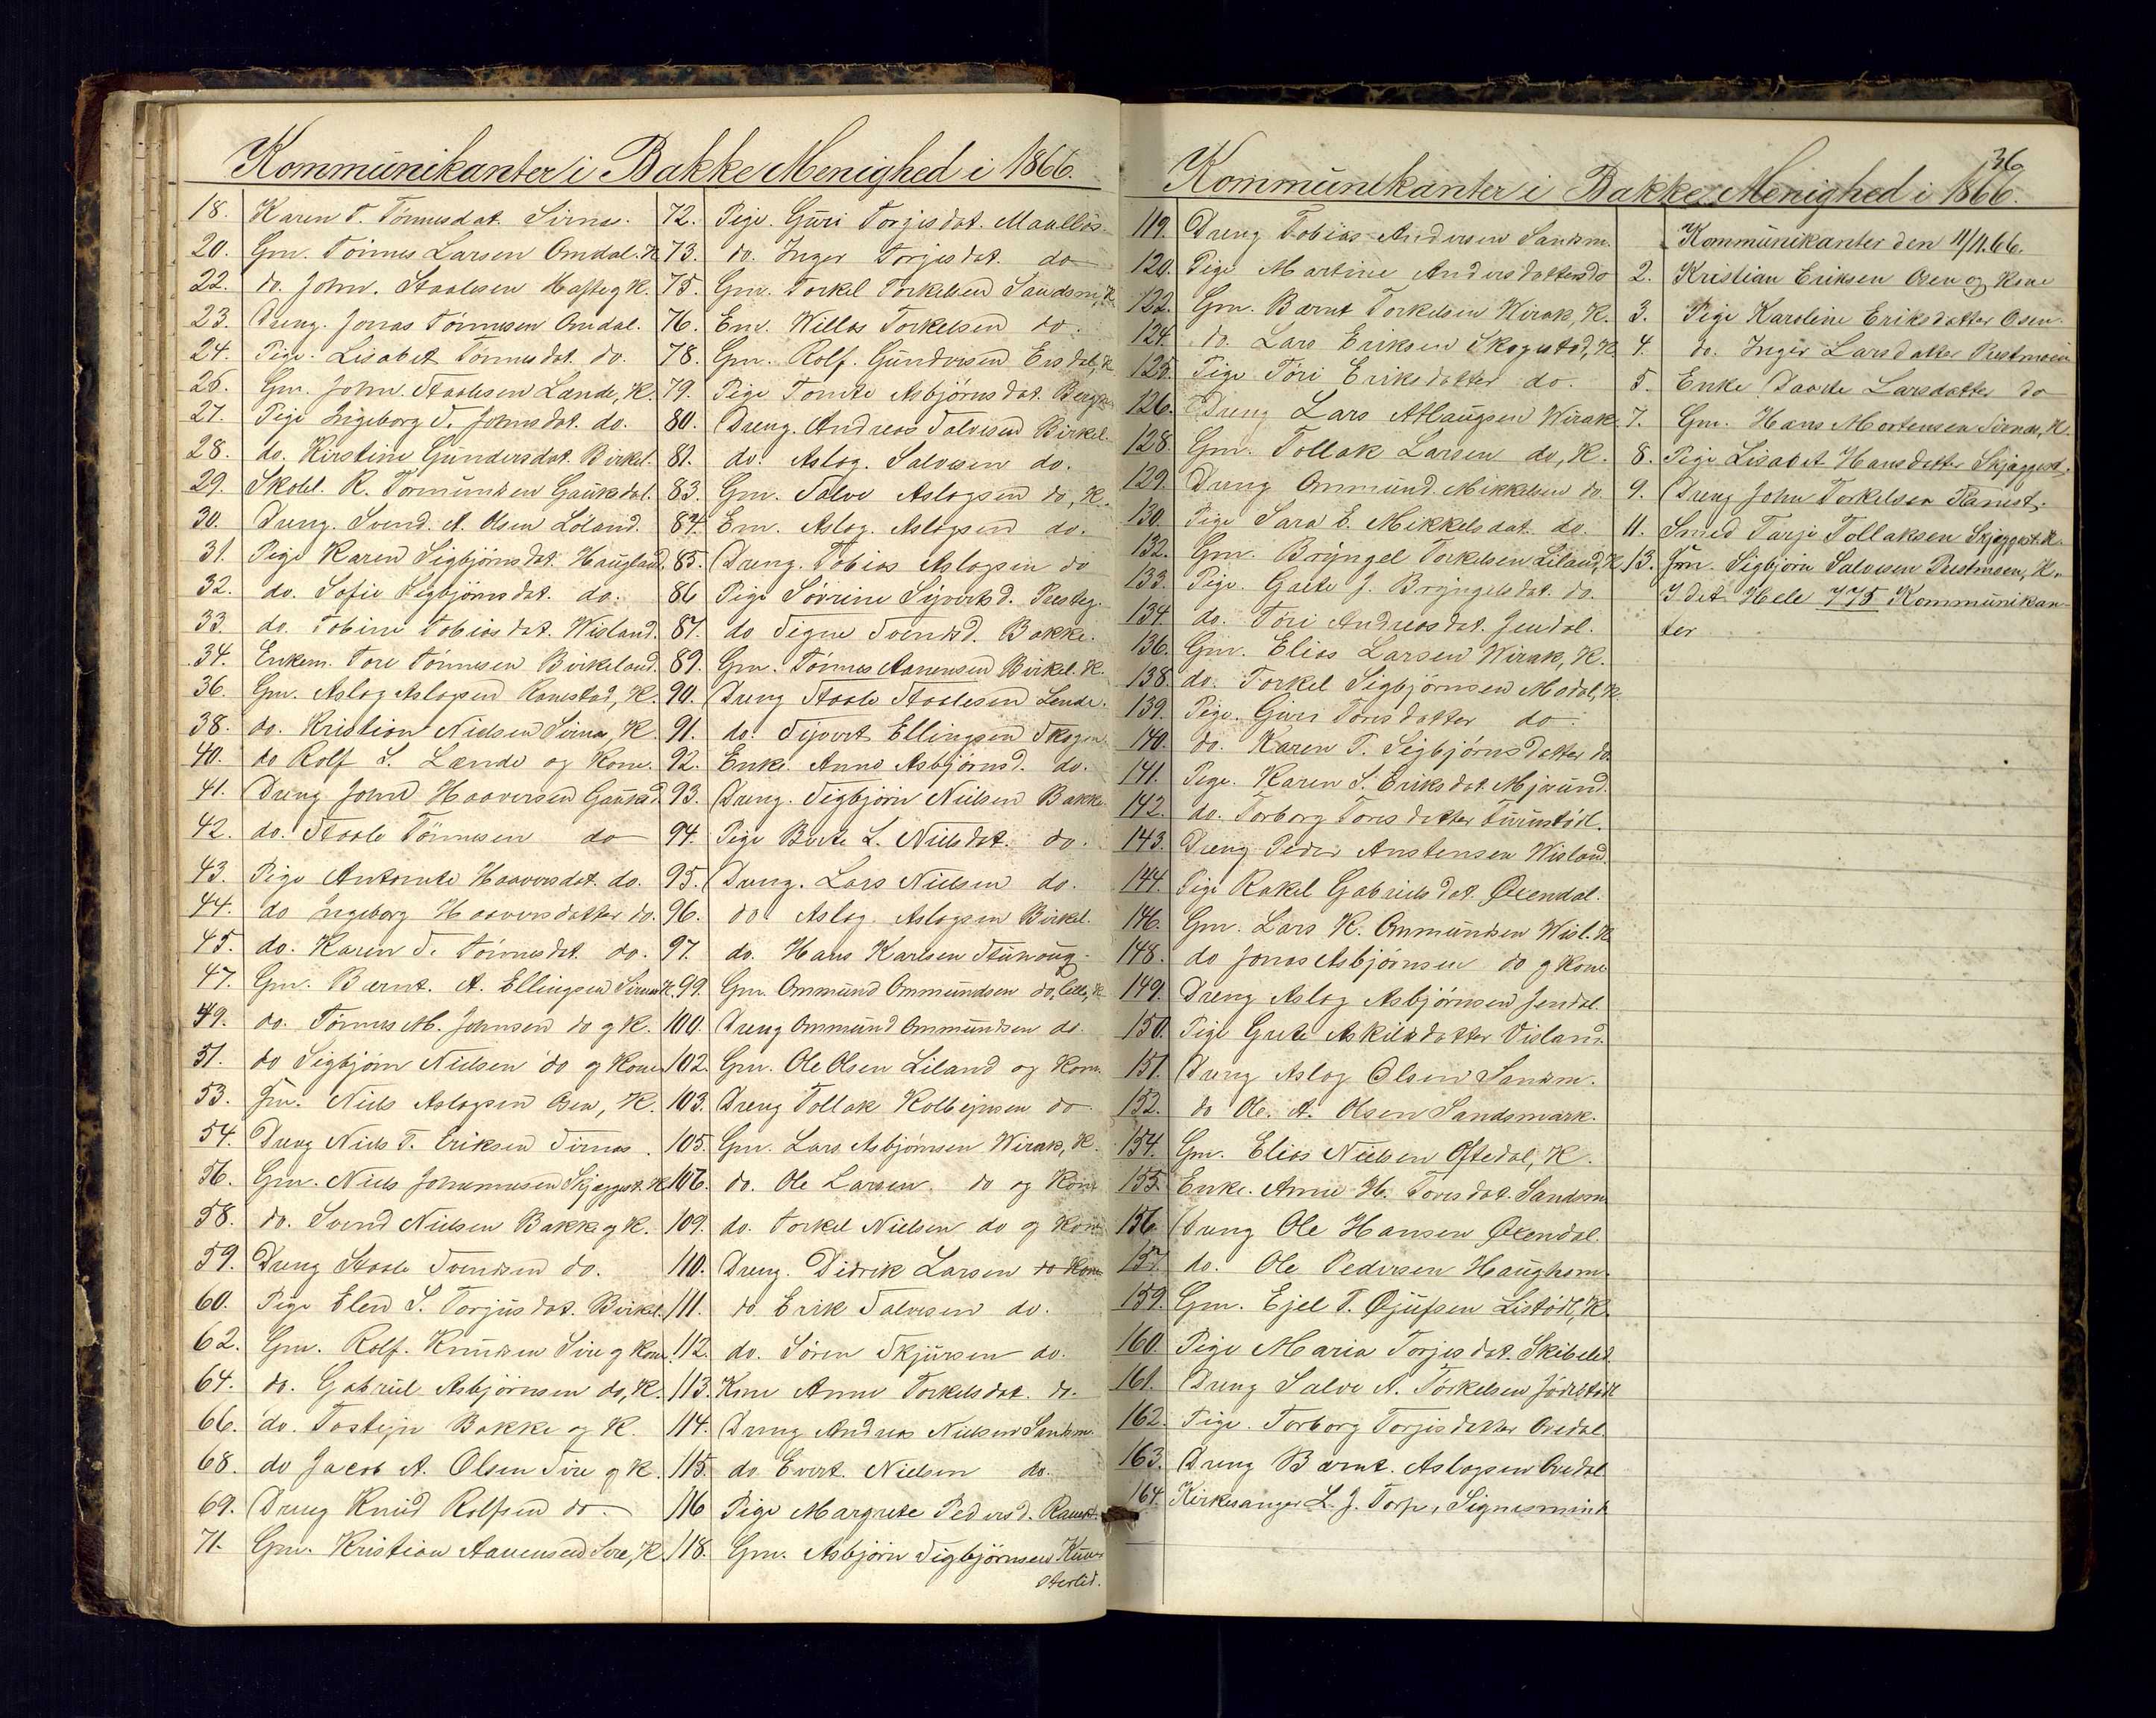 Kommunikanter i Bakke Menighed i 1866.
18. Karen T. Tönnesdat. Sirnes.
20. Gm. Tönnes Larsen Omdal. K.
22. do. John. Staalesen Hafte g K.
23. Dreng. Jonas Tönnesen Omdal.
24. Pige. Lisabet Tönnesdat. do.
26. Gm. John Staalesen Lande, K.
27. Pige Ingeborg S. Johnsdat. do.
28. do. Kirstine Gundersdat. Birkel.
29. Skolel. R. Tormundsen Gauksdal.
30. Dreng. Svend. A. Olsen Löland.
31. Pige Karen Sigbjörnsdat. Haugland.
32. do. Sofie Sigbjörnsdat. do.
33. do. Tobine Tobiasdat. Wisland.
34. Enkem. Tore Tönnesen Birkeland.
36. Gm. Aslog Aslogsen Ranestad, K.
38. do. Kristian Nielsen Sirnes, K.
40. do Rolf S. Lande og Kone.
41. Dreng John Haaversen
42. do. Staale Tönnesen do
43. Pige Antonete Haaversdat. do.
44. do Ingeborg Haaversdatter do.
45. do. Karen S. Tönnesdat. do.
47. Gm. Bernt. A. Ellingsen Sirnes K.
49. do. Tönnes M. Johnsen do g K.
51. do Sigbjörn Nielsen do g Kone
53. Fm. Niels Aslogsen Osen, K.
54. Dreng Niels T. Eriksen Sirnes.
56. Gm. Niels Johannesen Skjeggest. K.
58. do. Svend Nielsen Bakke g K.
59. Dreng Staale Svendsen do.
60. Pige Elen S. Torjusdat. Birkel.
62. Gm. Rolf. Knudsen Sire g Kone.
64. do. Gabriel Asbjörnsen do, K.
66. do. Tostejn Bakke og K.
68. do Jacob A. Olsen Sire g K.
69. Dreng Knud Rolfsen do.
71. Gm. Kristian Aanensen Sire, K.
72. Pige. Guri Torjisdat. Maallös.
73. do. Inger Torjisdat. do
75. Gm. Torkel Torkelsen Sandsm, K.
76. Em. Willas Torkelsen do.
78. Gm. Rolf. Gundersen
79. Pige Tomte Asbjörnsdat.
80. Dreng. Andreas Salvesen Birkel.
81. do. Aslog. Salvesen do.
83. Gm. Salve Aslogsen do, K.
84. Em. Aslog. Aslogsen do.
85. Dreng. Tobias Aslogsen do
86 Pige Sövrine Sijvertsd. Presteg.
87. do Signe Svendsd. Bakke.
89. Gm. Tönnes Aanensen Birkel. K.
90. Dreng Staale Staalesen Lende.
91. do. Sijvert Ellingsen
92. Enke. Anne Asbjörnsd. do.
93. Dreng. Sigbjörn Nielsen Bakke.
94. Pige Berte L. Nielsdat. do.
95. Dreng. Lars Nielsen do.
96. do. Aslog. Aslogsen Birkel.
97. do. Hans Karlsen
99. Gm. Ommund Ommundsen do,
100. Dreng Ommund Ommundsen do.
102. Gm. Ole Olsen Liland og Kone.
103. Dreng Tollak Kolbejnsen do
105. Gm. Lars Asbjörnsen Wirak, K.
106. do. Ole Larsen. do og Kone
109. do. Torkel Nielsen do g Kone
110. Dreng. Didrik Larsen do Kone
111. do Erik Salvesen do.
112. do. Sören Skjursen do.
113. Kone Anne Torkelsdat. do.
114. Dreng Andreas Nielsen Sandsm.
115. do Evert. Nielsen do.
116 Pige Margrete Pedersd. Ranest.
118. Gm. Asbjörn Sigbjörnsen
36
Kommunikanter i Bakke Menighed i 1866.
119. Dreng Tobias Andersen Sandsm.
120. Pige Martine Andersdatter do
122. Gm. Bernt Torkelsen Wirak, K.
124. do. Lars Eriksen Skogestad, K.
125. Pige Töri Eriksdatter do.
126. Dreng Lars Atlaugsen Wirak.
128. Gm. Tollak Larsen do, K.
129. Dreng Ommund Mikkelsen do.
130. Pige Sara E. Mikkelsdat. do.
132. Gm. Bryngel Torkelsen Liland, K
133. Pige. Grete J. Bryngelsdat. do.
134. do. Töri Andreasdat. Jendal.
136. Gm. Elias Larsen Wirak, K.
138. do. Torkel Sigbjörnsen Modal, K.
139. Pige. Guri Toresdatter do.
140. do. Karen T. Sigbjörnsdatter do.
141. Pige. Karen S. Eriksdat. Mjaund.
142. do. Torborg Toresdatter
143. Dreng Peder Anstensen Wisland.
144. Pige Rakel Gabrielsdat. Øxendal.
146. Gm. Lars K. Ommundsen Wisl. K
148. do Jonas Asbjörnsen do g Kone
149. Dreng Aslog Asbjörnsen Jendal.
150. Pige Grete Askildsdatter Visland.
151. Dreng Aslog Olsen Sandsm.
152. do Ole. A. Olsen Sandsmark.
154. Gm. Elias Nielsen Oftedal, K.
155. Enke. Anne H. Toresdat. Sandsm
156. Dreng Ole Hansen Øxendal.
157. do. Ole Pedersen Haughom.
159. Gm. Ejel T. Øjufsen Listöl, K.
160. Pige Maria Torjisdat. Skibeled.
161. Dreng Salve N. Törkelsen
162. Pige. Torborg Torjisdatter Ovedal
163. Dreng Bernt. Aslogsen Ovedal
164. Kirkesanger L. J. Torp, Signesmink
Kommunikanter den 11/11.66.
2. Kristian Eriksen Osen og Kone
3. Pige Karoline Eriksdatter Osen.
4. do. Inger Larsdatter Prestmoen
5. Enke Daarte Larsdatter do
7. Gm. Hans Mortensen Sirnes, K.
8. Pige Lisabet Hansdatter Skjeggest.
9. Dreng John Torkelsen Ranest.
11. Smed Tarje Tollaksen Skjeggest. K.
13. Fm. Sigbjörn Salvesen Prestmoen, K.
I det Hele 775 Kommunikan-
ter